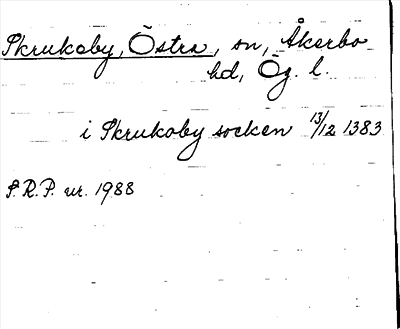 Skrukeby, Östra, sn, Åkerbo
hd, Ög. l.
i Skrukoby socken 13/12 1383
S.R.P. nr. 1988